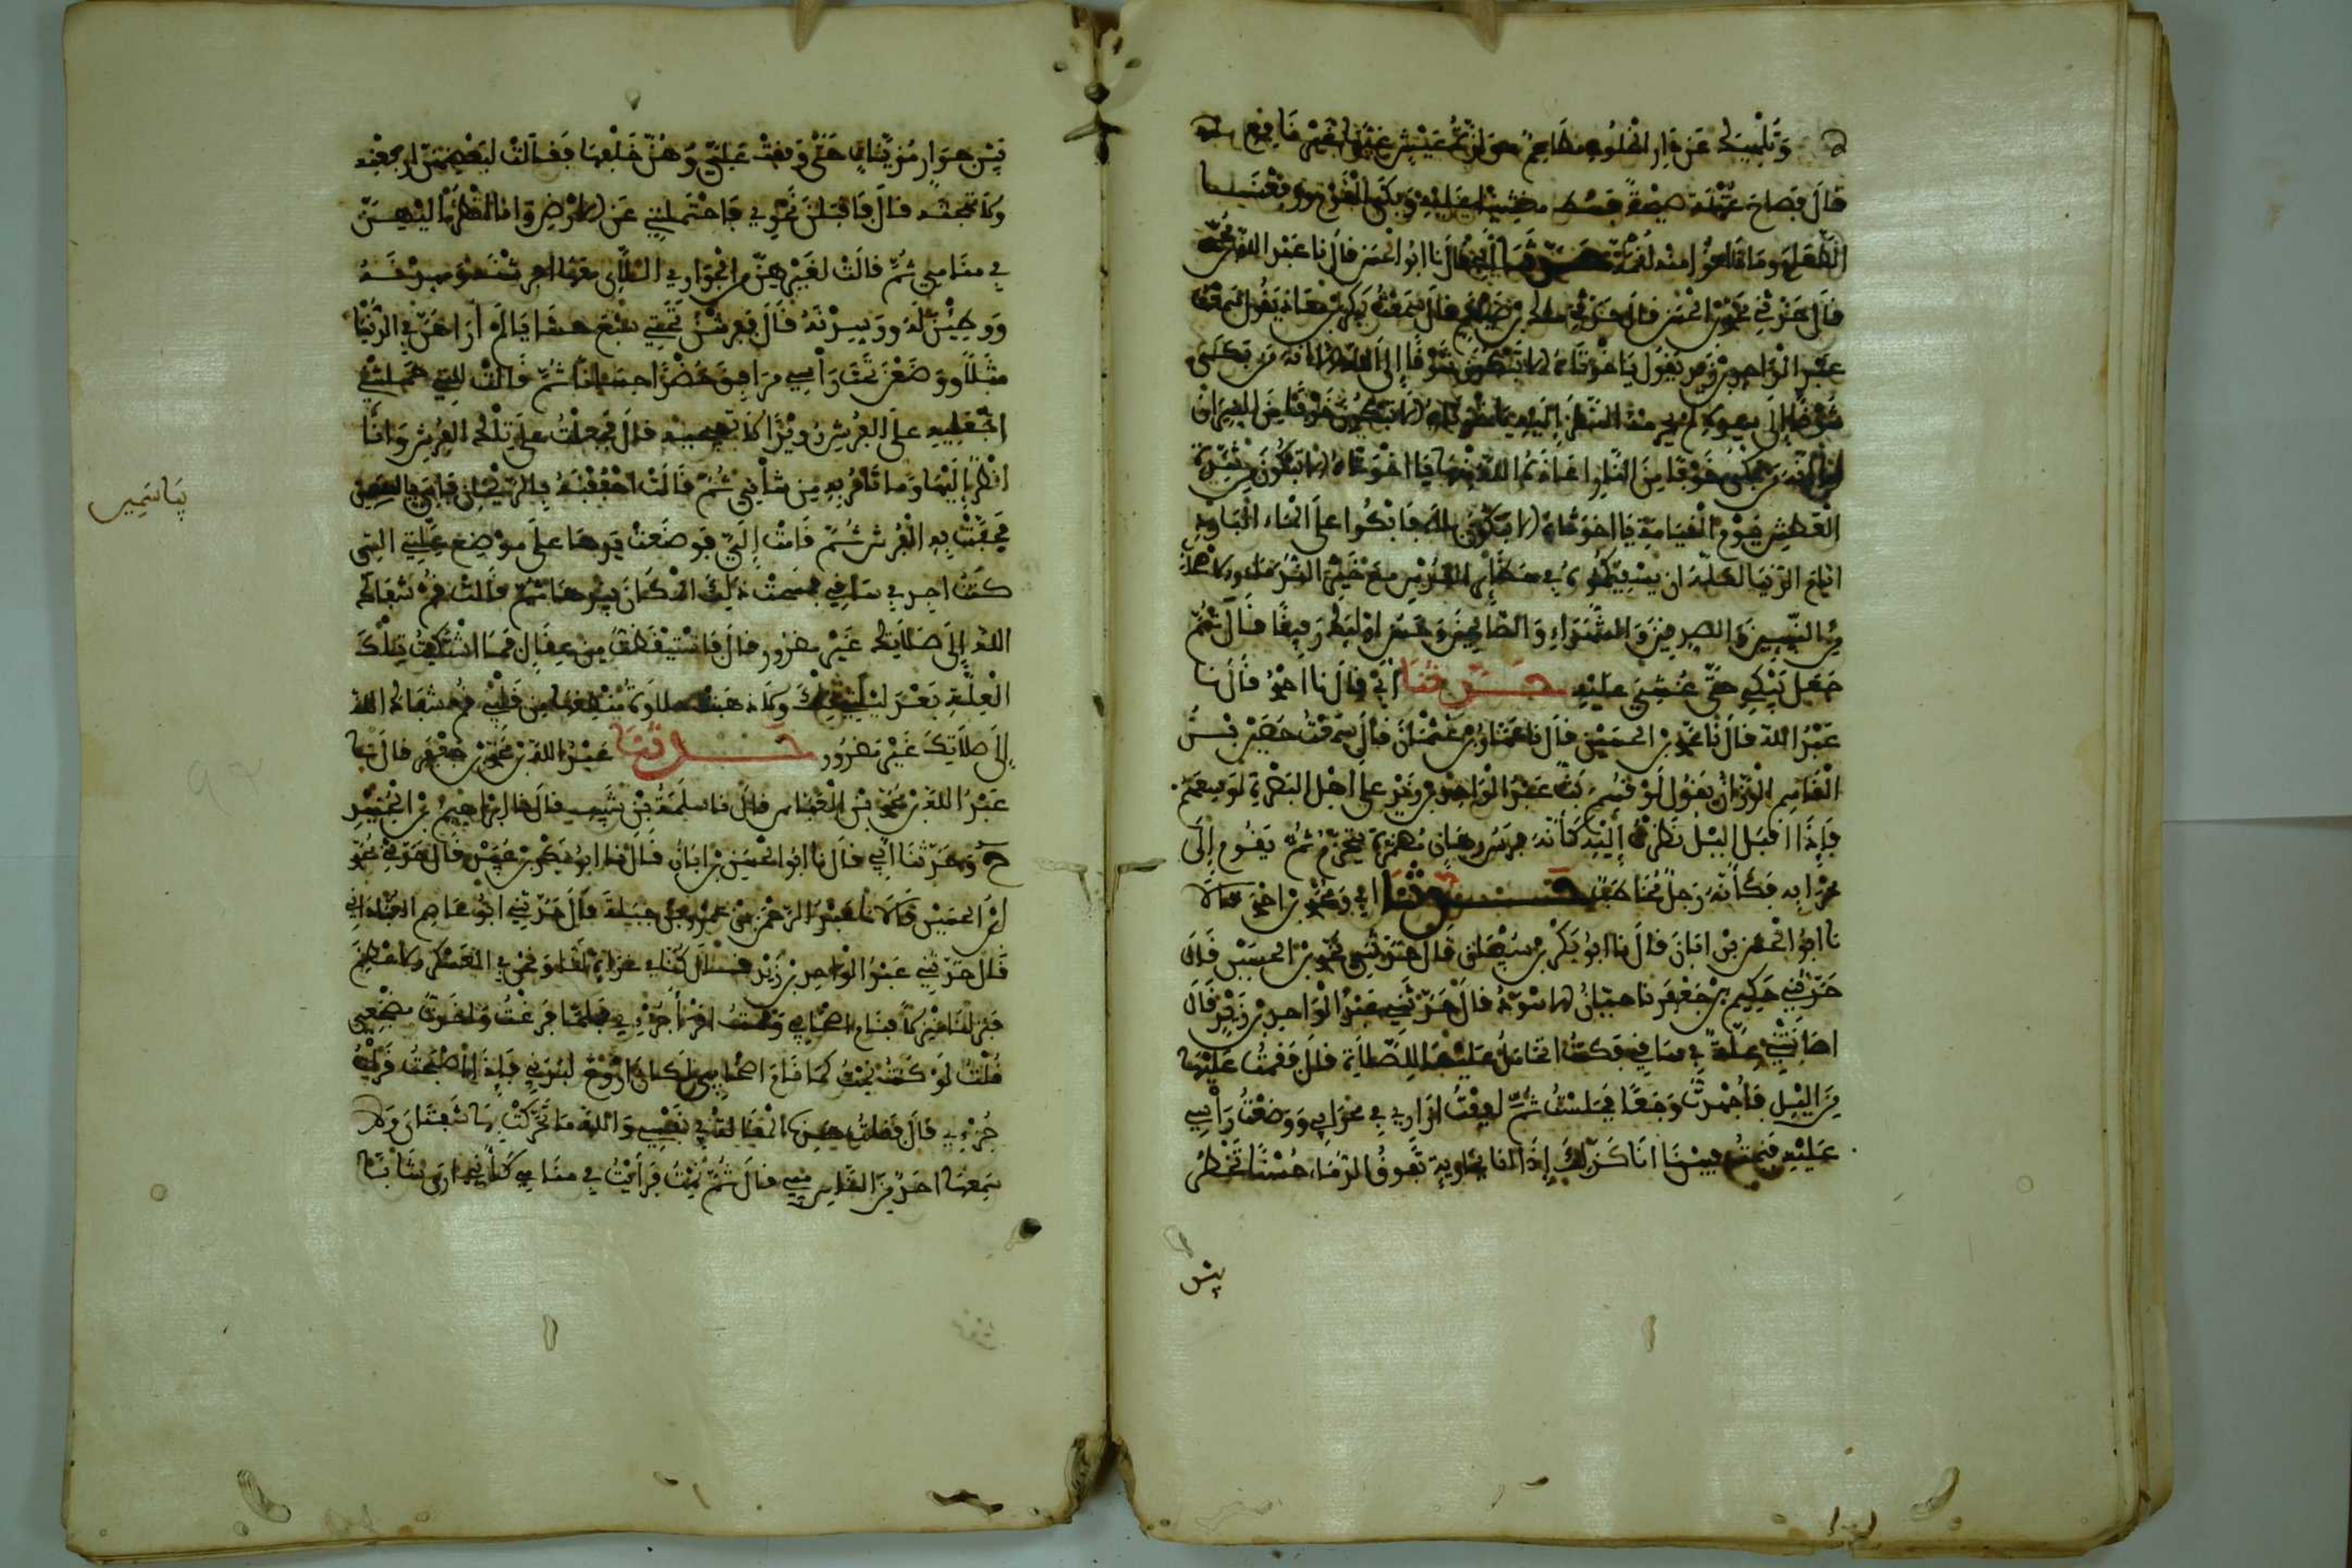 وتلهيك عن دار الخلود
قال فصاح عتبة صيحة فسقط مغشيا عليه وبكى القوم
قال نا ابو الحسن قال نا عبد الله بن محمد
قال حدثني محمد بن الحسين قال حدثني قال سمعت بكر بن معاذ يقول سمعت
عبد الواحد بن زيد يقول يا اخوتاه الا تبكون شوقا إلى الله الا انه من بكى
شوقا إلى سيده لم يحرمه النظر إليه يا اخوتاه الا تبكون خوفا من النيران
الا وانه من بكى خوفا من النار اعاذه الله منها يا اخوتاه الا تبكون من شدة
العطش يوم القيامة يا اخوتاه الا تبكون بلى فابكوا على الماء البارد
ايام الدنيا لعله ان يسقيكموه في حظائر القدس مع خير الندماء والاصحاب
من النبيين والصديقين والشهداء والصالحين وحسن اولئك رفيقا قال ثم
جعل يبكي حتى غشي عليه حدثنا ابي قال نا احمد قال نا
عبد الله قال نا محمد بن الحسين قال نا عمار بن عثمان قال سمعت حصين بن
القاسم الوزان يقول لو قسم بث عبد الواحد بن زيد على اهل البصرة لوسعهم
فإذا اقبل الليل نظرت إليه كأنه فرس رهان مضمر يتحزم ثم يقوم إلى
محرابه فكأنه رجل مخاطب حدثنا ابي ومحمد بن احمد قالا
نا ابو الحسن بن ابان قال نا ابو بكر بن سفيان قال حدثني محمد بن الحسين قال
حدثني حكيم بن جعفر نا حبان الاسود قال حدثني عبد الواحد بن زيد قال
اصابتني علة في ساقي فكنت اتحامل عليها للصلاة قال فقمت عليها
من الليل فأجهدت وجعا فجلست ثم لففت ازاري في محرابي ووضعت رأسي
عليه فنمت فبينما انا كذلك إذا انا بجارية تفوق الدنيا حسنا تخطر
بين
بين جوار مزينات حتى وقفت علي وهن خلفها فقالت لبعضهن ارفعنه
ولا تهجنه قال فاقبلن نحوي فاحتملنني عن الارض وانا انظر إليهن
في منامي ثم قالت لغيرهن من الجواري اللاتي معها افرشنه ومهدنه
ووطئن له ووسدنه قال ففرشن تحتي سبع حشايا لم أر لهن في الدنيا
مثلا ووضعن تحت رأسي مرافق خضرا حسانا ثم قالت للتي حملنني
اجعلنه على الفرش رويدا لا تهجنه قال فجعلت على تلك الفرش وانا
انظر إليها وما تأمر به من شأني ثم قالت احففنه بالريحان فاتي بياسمين
فحفت به الفرش ثم قامت إلي فوضعت يدها على موضع علتي التي
كنت اجد في ساقي فمسحت ذلك المكان بيدها ثم قالت قم شفاك
الله إلى صلاتك غير مضرور قال فاستيقظت من عقال فما اشتكيت تلك
العلة بعد ليلتي تلك ولا ذهب حلاوة منطقها من قلبي قم شفاك الله
إلى صلاتك غير مضرور حدثنا عبد الله بن محمد بن جعفر قال نا
عبد الله بن محمد بن العباس قال نا سلمة بن شبيب قال نا ابراهيم بن الجنيد
ح وحدثنا ابي قال نا ابو الحسن بن ابان قال نا ابو بكر بن عبيد قال حدثني محمد
بن الحسين قالا نا عبد الرحمن بن عمرو بن جبلة قال حدثني ابو عاصم العباداني
قال حدثني عبد الواحد بن زيد قال كنا في غزاة لنا ونحن في العسكر الاعظم
فنزلنا منزلا فنام اصحابي وقمت اقرأ جزئي
قلت لو كنت نمت كما نام اصحابي لكان اروح لبدني فإذا اصبحت قرأت
جزئي قال فقلت هذه المقالة في نفسي والله ما تحركت بها شفتاي ولا
سمعها احد من الناس مني قال ثم نمت فرأيت في منامي كأني ارى شابا
بياسمين